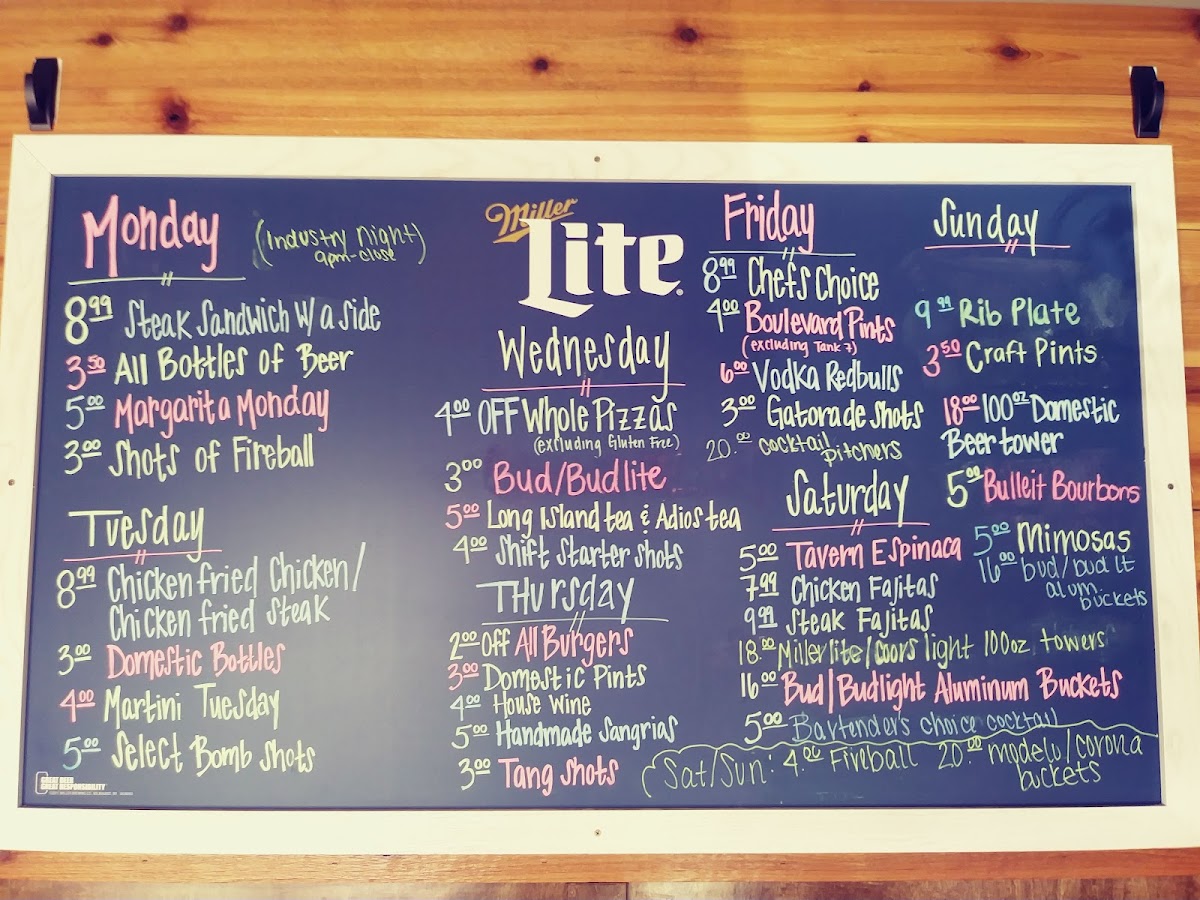 Monday
(Industry night)
9pm-close
8.99 Steak Sandwich w/ a side
3.50 All Bottles of Beer
5.00 Margarita Monday
3.00 Shots of Fireball
Tuesday
8.99 Chicken fried Chicken/
Chicken fried steak
3.00 Domestic Bottles
4.00 Martini Tuesday
5.00 Select Bomb Shots
GREAT BEER
GREAT RESPONSIBILITY
Miller
Lite
Wednesday
4.00 OFF Whole Pizzas
(excluding Gluten Free)
3.00 Bud/Bud lite
5.00 Long Island tea & Adios tea
4.00 Shift Starter shots
Thursday
2.00 Off All Burgers
3.00 Domestic Pints
4.00 House Wine
5.00 Handmade Sangrias
3.00 Tang Shots
Friday
8.99 Chefs Choice
4.00 Boulevard Pints
(excluding Tank 7)
6.00 Vodka Redbulls
3.00 Gatorade Shots
20.00 cocktail pitchers
Saturday
5.00 Tavern Espinaca
7.99 Chicken Fajitas
9.99 Steak Fajitas
18.00 Miller lite/Coors light 100oz towers
16.00 Bud/Budlight Aluminum Buckets
5.00 Bartenders choice cocktail
Sunday
9.99 Rib Plate
3.50 Craft Pints
18.00 100oz Domestic
Beer tower
5.00 Bulleit Bourbons
5.00 Mimosas
16.00 bud/bud lt
alum.
buckets
(Sat/Sun: 4.00 Fireball 20.00 modelo/corona
buckets